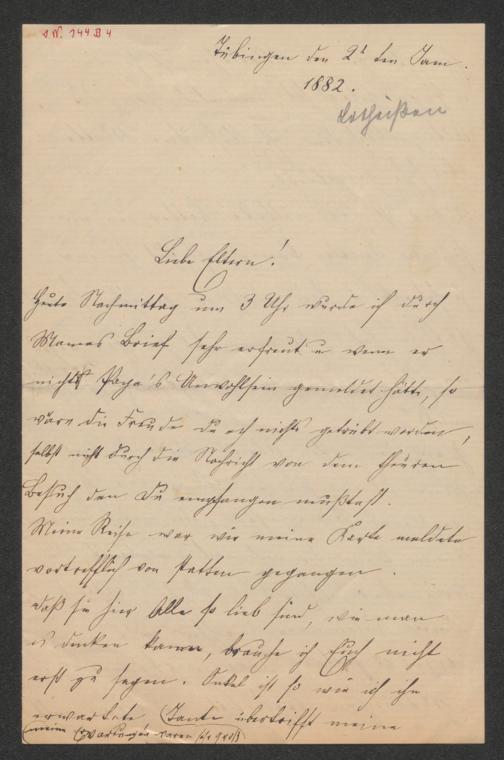 I. N. 144.114
Tübingen den 2t ten Jan.
1882.
Lotheißen
Liebe Eltern!
Heute Nachmittag um 3 Uhr wurde ich durch
Mamas Brief sehr erfreut u wenn er
nicht Papa's Unwohlsein gemeldet hätte, so
wäre die Freude durch nichts getrübt worden,
selbst nicht durch die Nachricht von dem theuren
Besuch den Du empfangen mußtest.
Meine Reise war wie meine Karte meldete
vortrefflich von Statten gegangen.
Daß sie hier Alle so lieb sind, wie man
es denken kann, brauche ich Euch nicht
erst zu sagen. Onkel ist so wie ich ihn
erwartete (Tante übertrifft meine
(meine Erwartungen waren sehr groß)